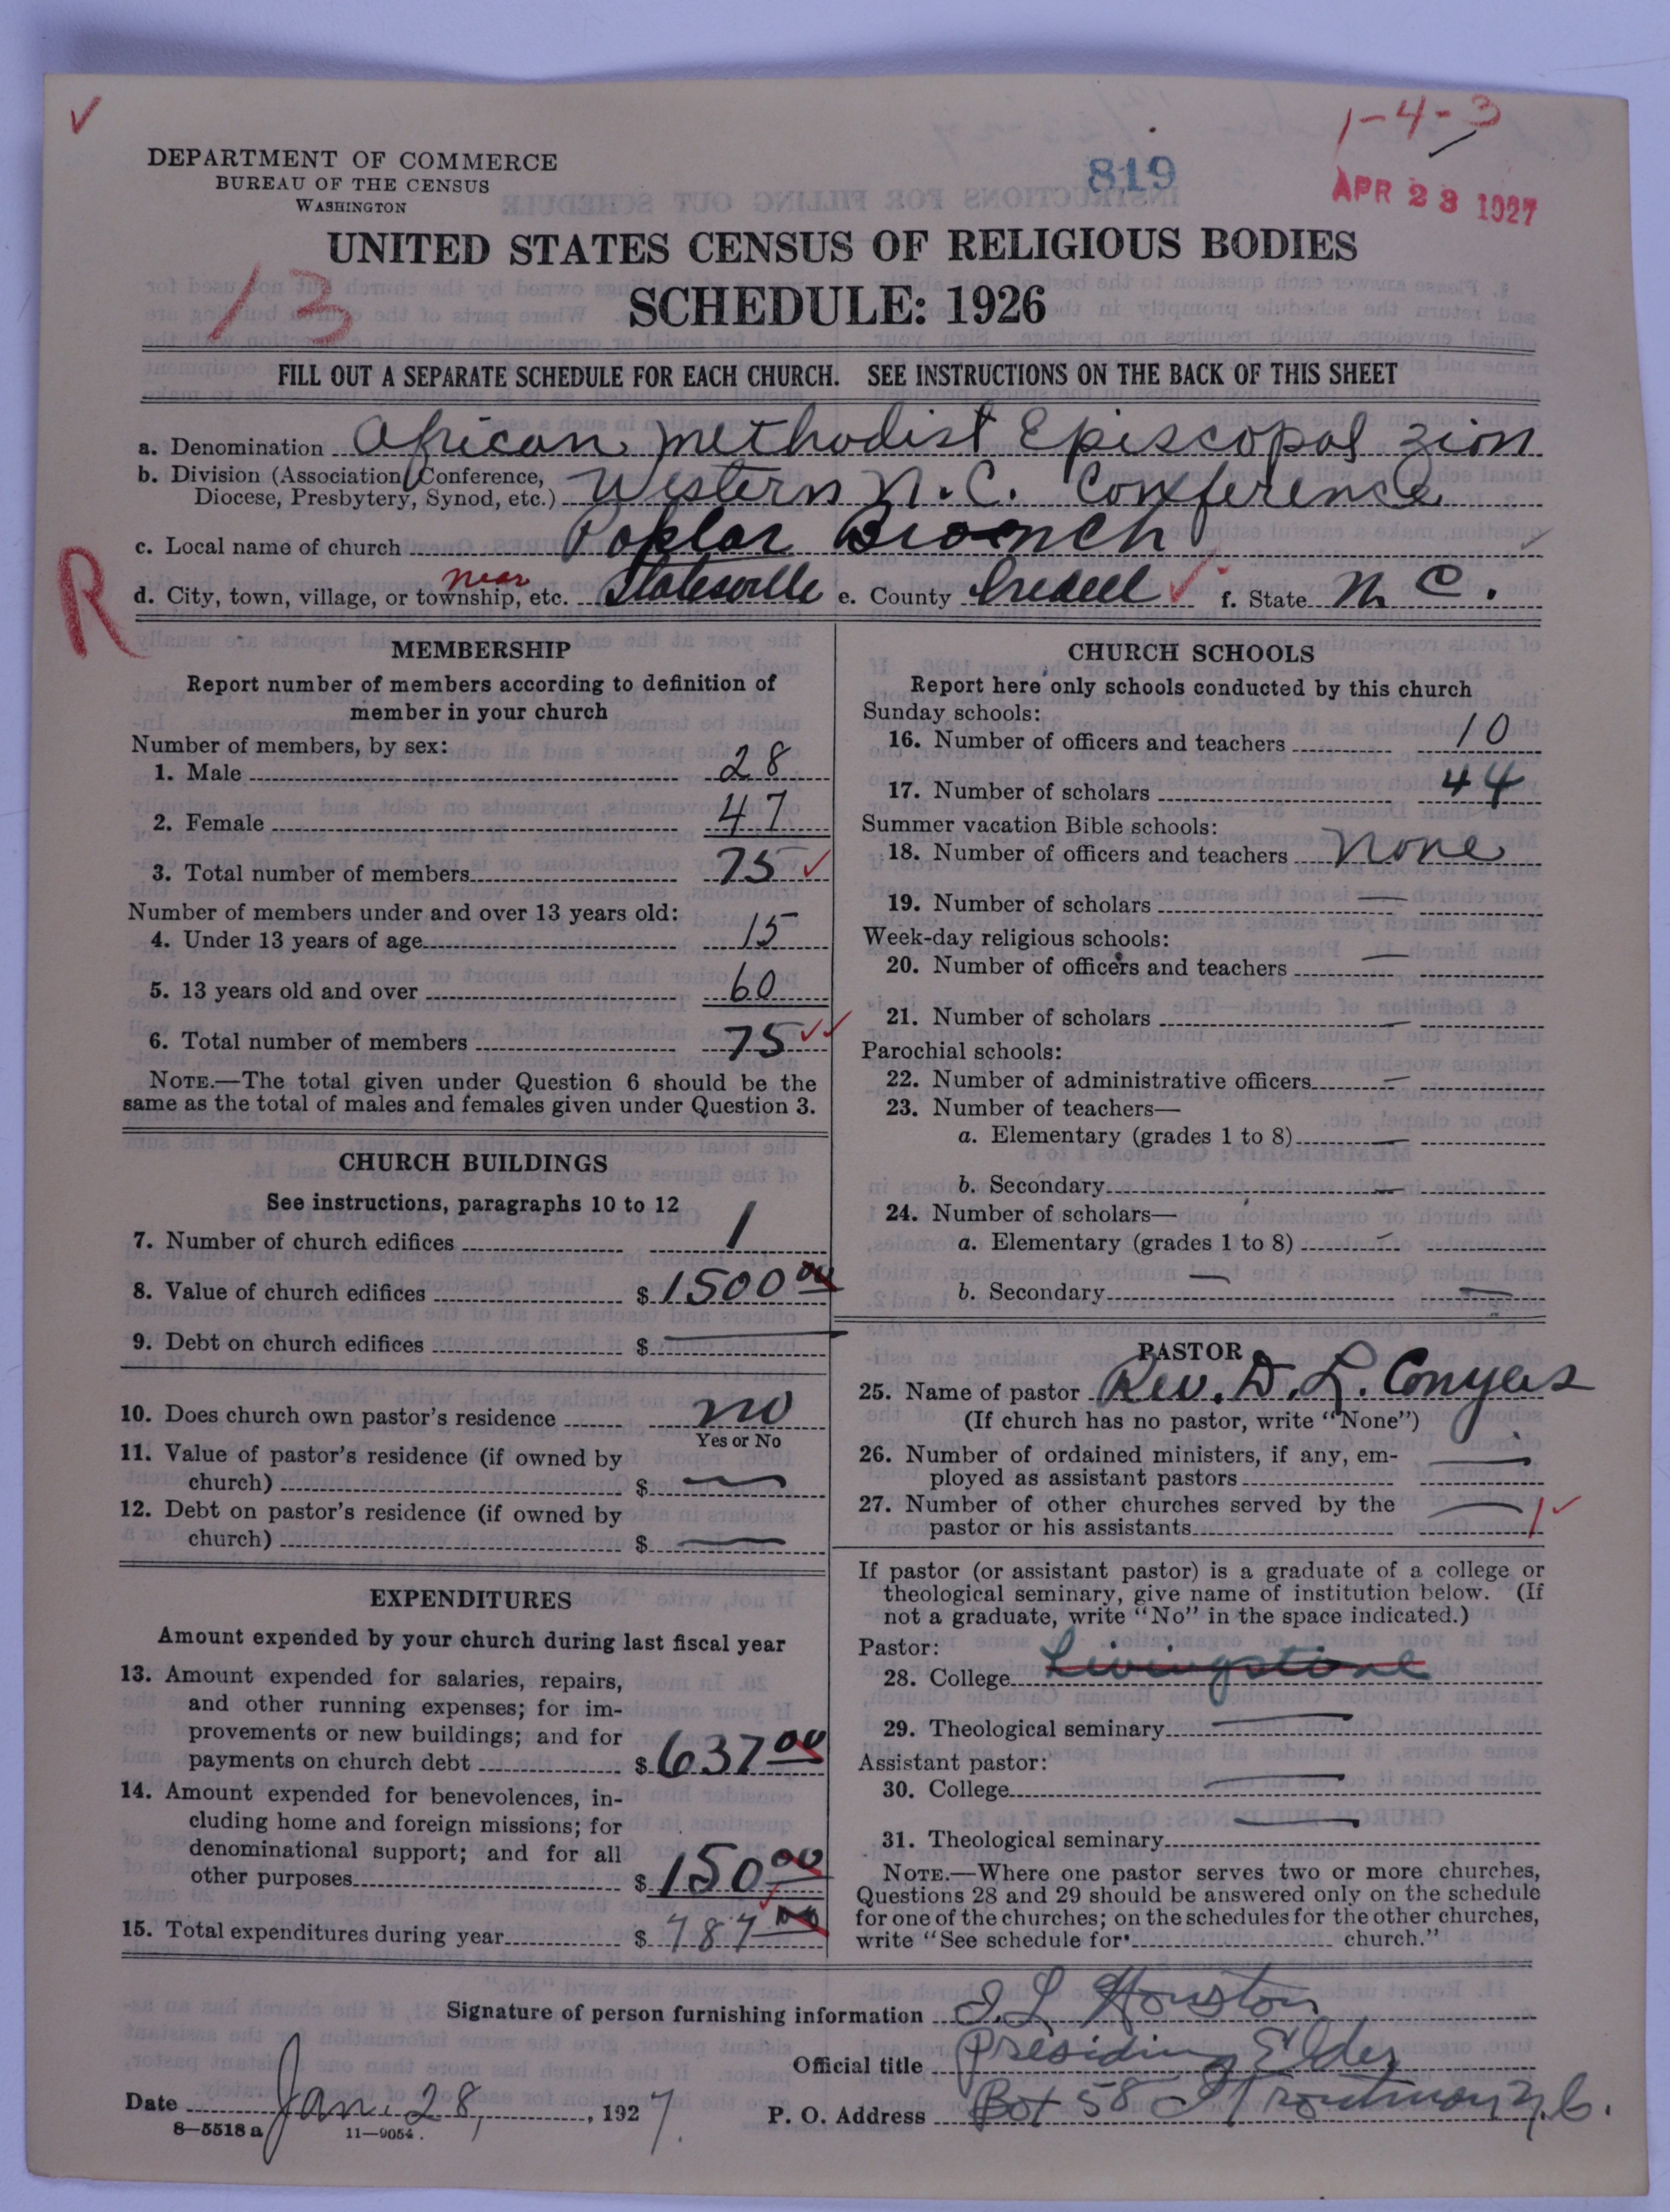 1-4-3
DEPARTMENT OF COMMERCE
BUREAU OF THE CENSUS
WASHINGTON
819
APR 23 1927
UNITED STATES CENSUS OF RELIGIOUS BODIES
13
SCHEDULE: 1926
FILL OUT A SEPARATE SCHEDULE FOR EACH CHURCH. SEE INSTRUCTIONS ON THE BACK OF THIS SHEET
a. Denomination African Methodist Episcopal Zion
b. Division (Association, Conference,
Diocese, Presbytery, Synod, etc.) Western N.C. Conference
c. Local name of church Poplar Branch
R
d. City, town, village, or township, etc. near Statesville e. County Iredell f. State N. C.
MEMBERSHIP
Report number of members according to definition of
member in your church
Number of members, by sex:
1. Male 28
2. Female 47
3. Total number of members 75
Number of members under and over 13 years old:
4. Under 13 years of age 15
5. 13 years old and over 60
6. Total number of members 75
NOTE.—The total given under Question 6 should be the
same as the total of males and females given under Question 3.
CHURCH BUILDINGS
See instructions, paragraphs 10 to 12
7. Number of church edifices 1
8. Value of church edifices $ 1500 00
9. Debt on church edifices $ —
10. Does church own pastor's residence no
Yes or No
11. Value of pastor's residence (if owned by
church) $ —
12. Debt on pastor's residence (if owned by
church) $ —
EXPENDITURES
Amount expended by your church during last fiscal year
13. Amount expended for salaries, repairs,
and other running expenses; for im-
provements or new buildings; and for
payments on church debt $ 637 00
14. Amount expended for benevolences, in-
cluding home and foreign missions; for
denominational support; and for all
other purposes $ 150 00
15. Total expenditures during year $ 787 00
CHURCH SCHOOLS
Report here only schools conducted by this church
Sunday schools:
16. Number of officers and teachers 10
17. Number of scholars 44
Summer vacation Bible schools:
18. Number of officers and teachers None
19. Number of scholars —
Week-day religious schools:
20. Number of officers and teachers —
21. Number of scholars —
Parochial schools:
22. Number of administrative officers —
23. Number of teachers—
a. Elementary (grades 1 to 8) —
b. Secondary —
24. Number of scholars—
a. Elementary (grades 1 to 8) —
b. Secondary —
PASTOR
25. Name of pastor Rev. D. L. Conyers
(If church has no pastor, write "None")
26. Number of ordained ministers, if any, em-
ployed as assistant pastors —
27. Number of other churches served by the
pastor or his assistants — 1
If pastor (or assistant pastor) is a graduate of a college or
theological seminary, give name of institution below. (If
not a graduate, write "No" in the space indicated.)
Pastor:
28. College Livingstone
29. Theological seminary —
Assistant pastor:
30. College —
31. Theological seminary —
NOTE.—Where one pastor serves two or more churches,
Questions 28 and 29 should be answered only on the schedule
for one of the churches; on the schedules for the other churches,
write "See schedule for church."
Signature of person furnishing information J. L. Houston
Official title Presiding Elder
Date Jan. 28, 1927.
P. O. Address Box 58 Troutman N.C.
8—5518 a
11—9054